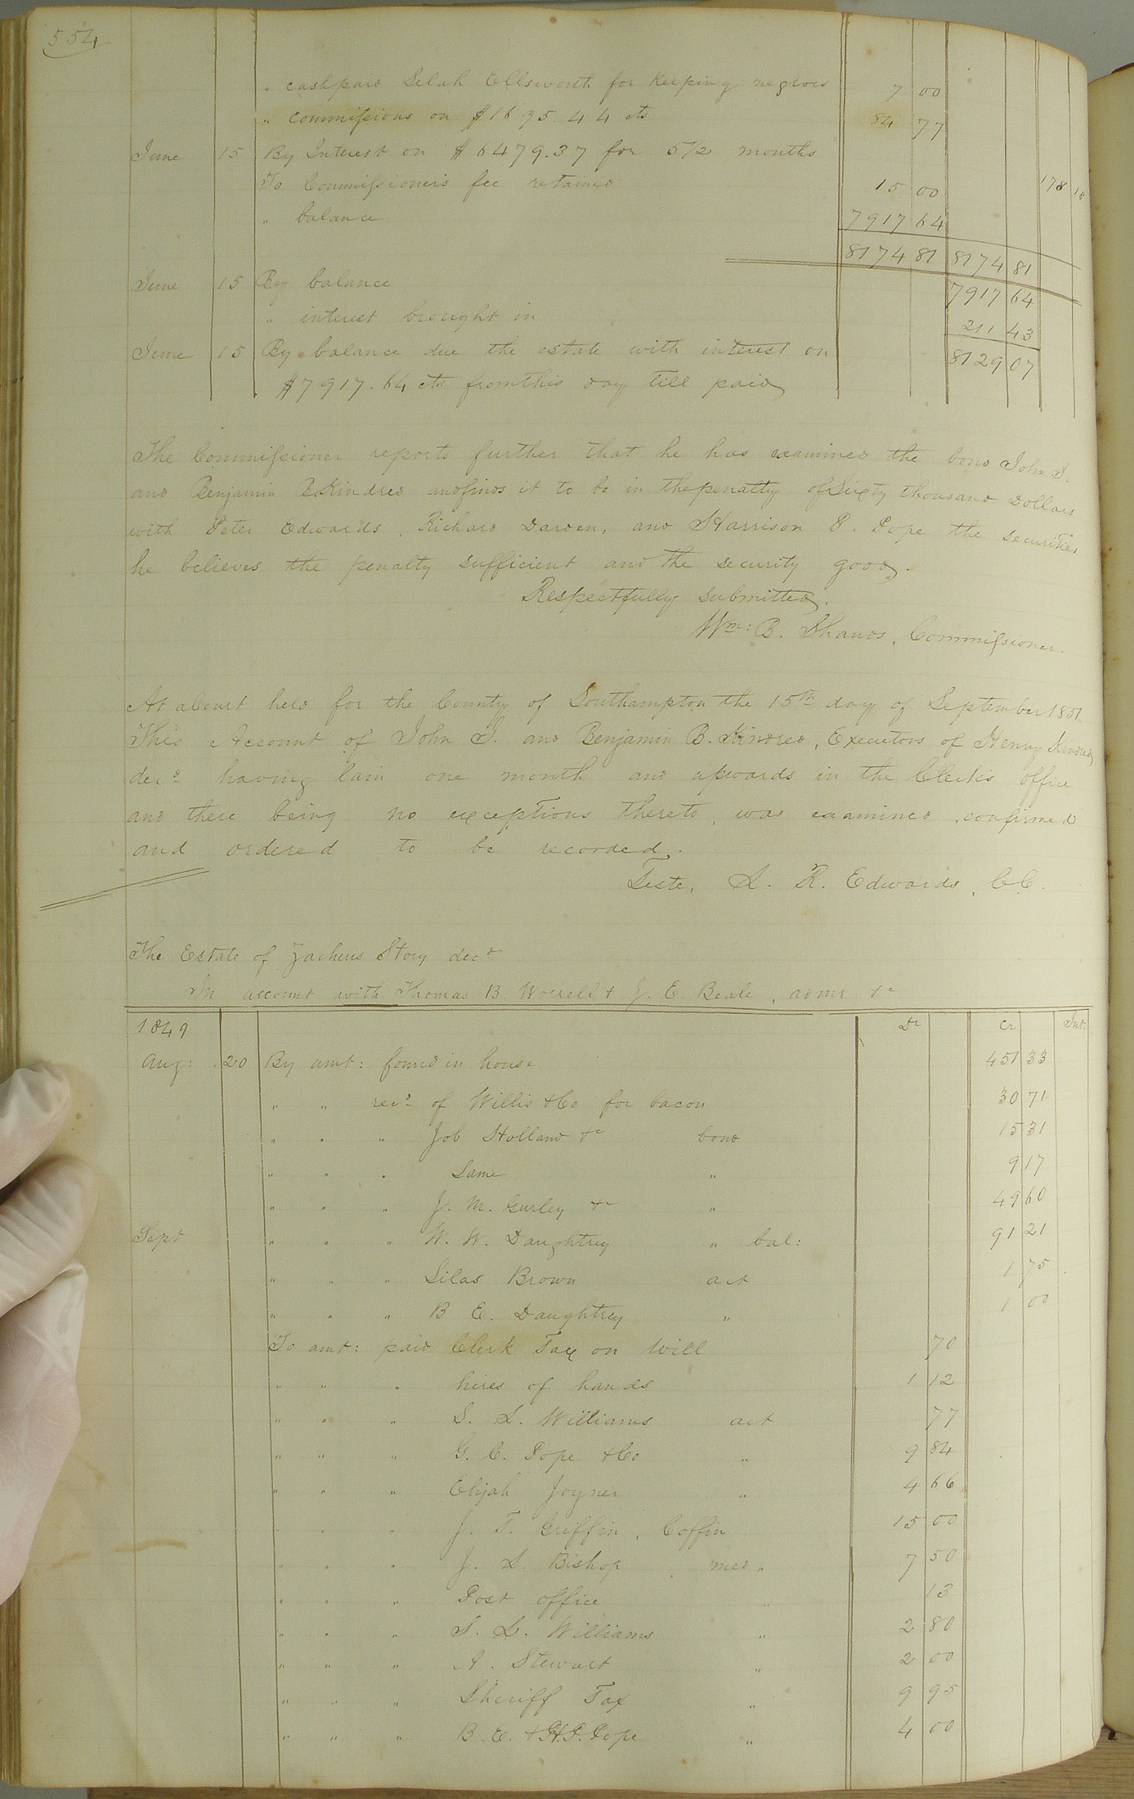 554
" cash paid Selah Ellsworth for keeping negroes 7 00
" commissions on $1695.44 cts 84 77
June 15 By Interest on $6479.37 for 5 1/2 months 178 18
To Commissioner's fee retained 15 00
" balance 7917 64
8174 81 8174 81
June 15 By balance 7917 64
" interest brought in 211 43
June 15 By balance due the estate with interest on 8129 07
$7917.64 cts from this day till paid
The Commissioner reports further that he has examined the bond John S.
and Benjamin B. Kindred and finds it to be in the penalty of Sixty thousand Dollars
with Peter Edwards, Richard Darden, and Harrison P. Pope the securities
he believes the penalty sufficient and the security good.
Respectfully submitted.
Wm: B. Shands, Commissioner.
At a Court held for the County of Southampton the 15th day of September 1851.
This Account of John S. and Benjamin B. Kindred, Executors of Henry Kindred
decd having lain one month and upwards in the Clerk's office
and there being no exceptions thereto, was examined, confirmed
and ordered to be recorded.
Teste, L. R. Edwards, C.C.
The Estate of Zacheus Story decd
In account with Thomas B. Worrell & J. E. Beale, admr &c
1849 Dr Cr Int.
Aug: 20 By amt: found in house 451 33
" " recd of Willis & Co for bacon 30 71
" " " Job Holland &c bond 15 31
" " " Same " 9 17
" " " J. M. Gurley &c " 49 60
Sept " " " W. W. Daughtrey " bal: 91 21
" " " Silas Brown act 1 75
" " " B. E. Daughtrey " 1 00
To amt: paid Clerk Tax on Will 70
" " " hires of hands 1 12
" " " S. L. Williams act 77
" " " G. C. Pope & Co " 9 84
" " " Elijah Joyner " 4 66
" " " J. T. Griffin, Coffin 15 00
" " " J. L. Bishop med " 7 50
" " " Post office " 13
" " " S. L. Williams " 2 80
" " " A. Stewart " 2 00
" " " Sheriff Tax " 9 95
" " " B. E. & H. P. Pope " 4 00